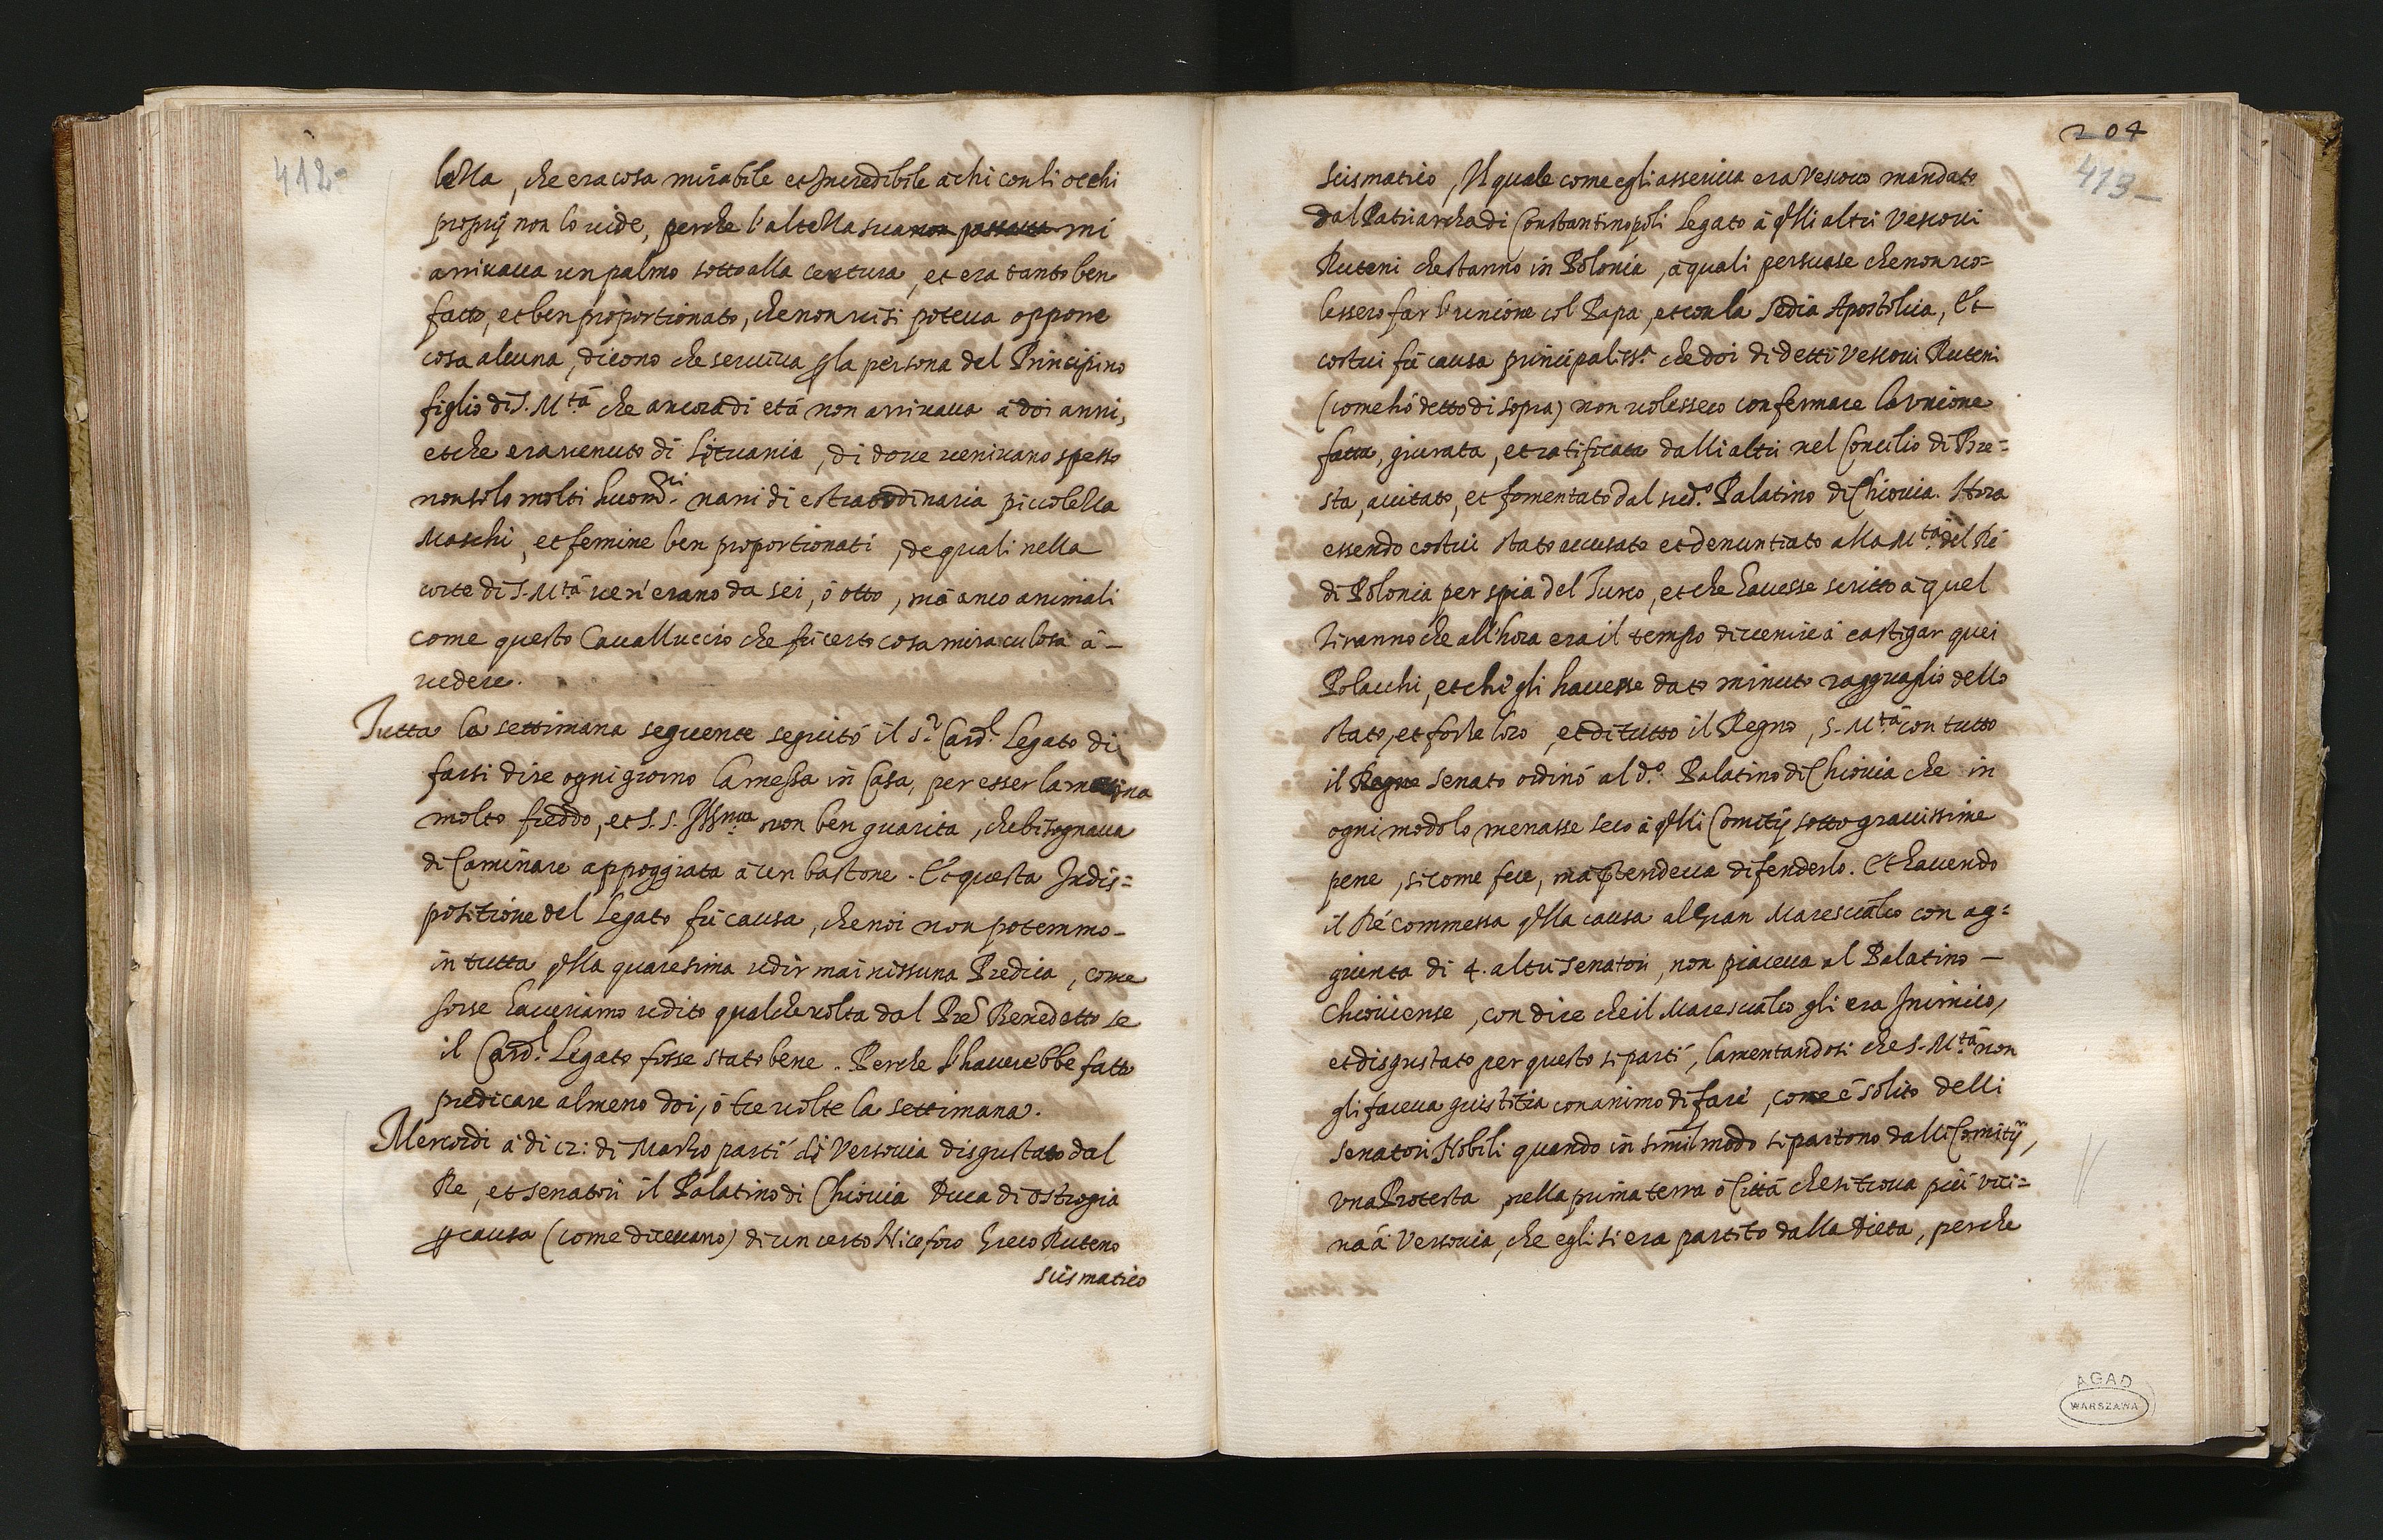 412-
lezza, che era cosa mirabile et Incredibile à chi con li occhi
proprij non lo vide, perche l'altezza sua non passaua mi
arriuaua un palmo sotto alla centura, et era tanto ben
fatto, et ben proportionato, che non ui si poteua opporre
cosa alcuna, dicono che seruiua p la persona del Principino
figlio di S. M.tà che ancora di età non arriuaua à doi anni,
et che era uenuto di Lituania, di doue ueniuano spesso
non solo molti huomi.ni nani di estraordinaria piccolezza
Maschi, et femine ben proportionati, de quali nella
corte di S. M.tà ue n'erano da sei, ò otto, mà anco animali
come questo Caualluccio che fù certo cosa miraculosa à -
uedere.
Tutta la settimana seguente seguitò il S.r Card.l Legato di
farsi dire ogni giorno la messa in Casa, per esser la matina
molto freddo, et S. S. Ill.ma non ben guarita, che bisognaua
di Caminare appoggiata à un bastone. Et questa Indis=
positione del Legato fù causa, che noi non potemmo -
in tutta qlla quaresima udir mai nissuna Predica, come
forse haueriamo udito qualche uolta dal Pre Benedetto se
il Card.l Legato fosse stato bene. Perche l'hauerebbe fatto
predicare almeno doi, ò tre uolte la settimana.
Mercordi à di 12: di Marzo partì di Versouia disgustato dal
Re, et senatori il Palatino di Chiouia Duca di Ostrogia
p causa (come diceuano) di un certo Niceforo Greco Ruteno
scismatico
204
413-
scismatico, Il quale come egli asseriua era Vescouo mandato
dal Patriarcha di Constantinopoli Legato à qlli altri Vescoui
Ruteni che stanno in Polonia, à quali persuase che non uo=
lessero far l'unione col Papa, et con la Sedia Apostolica, Et
costui fù causa principaliss.a che doi di detti Vescoui Ruteni
(come hò detto di sopra) non uolessero confermare la Vnione
fatta, giurata, et ratificata dalli altri nel Concilio di Bre=
sta, aiutato, et fomentato dal sud.o Palatino di Chiouia. Hora
essendo costui stato accusato et denuntiato alla M.tà del Rè
di Polonia per spia del Turco, et che hauesse scritto à quel
Tiranno che all'hora era il tempo di uenire à castigar quei
Polacchi, et che gli hauesse dato minuto ragguaglio dello
stato, et forze loro, et di tutto il Regno, S. M.tà con tutto
il Regno senato ordinò al d.o Palatino di Chiouia che in
ogni modo lo menasse seco à qlli Comitij sotto grauissime
pene, si come fece, mà ptendeua difenderlo. Et hauendo
il Rè commessa qlla causa al gran Marescialco con ag=
giunta di 4. altri senatori, non piaceua al Palatino -
Chiouiense, con dire che il Marescialco gli era Inimico,
et disgustato per questo si partì, lamentandosi che S. M.tà non
gli faceua giustitia con animo di fare, come è solito delli
senatori Nobili quando in simil modo si partono dalli Comitij,
vna Protesta, nella prima terra ò Città che si troua più uici=
na à Versouia, che egli si era partito dalla Dieta, perche
AGAD
WARSZAWA